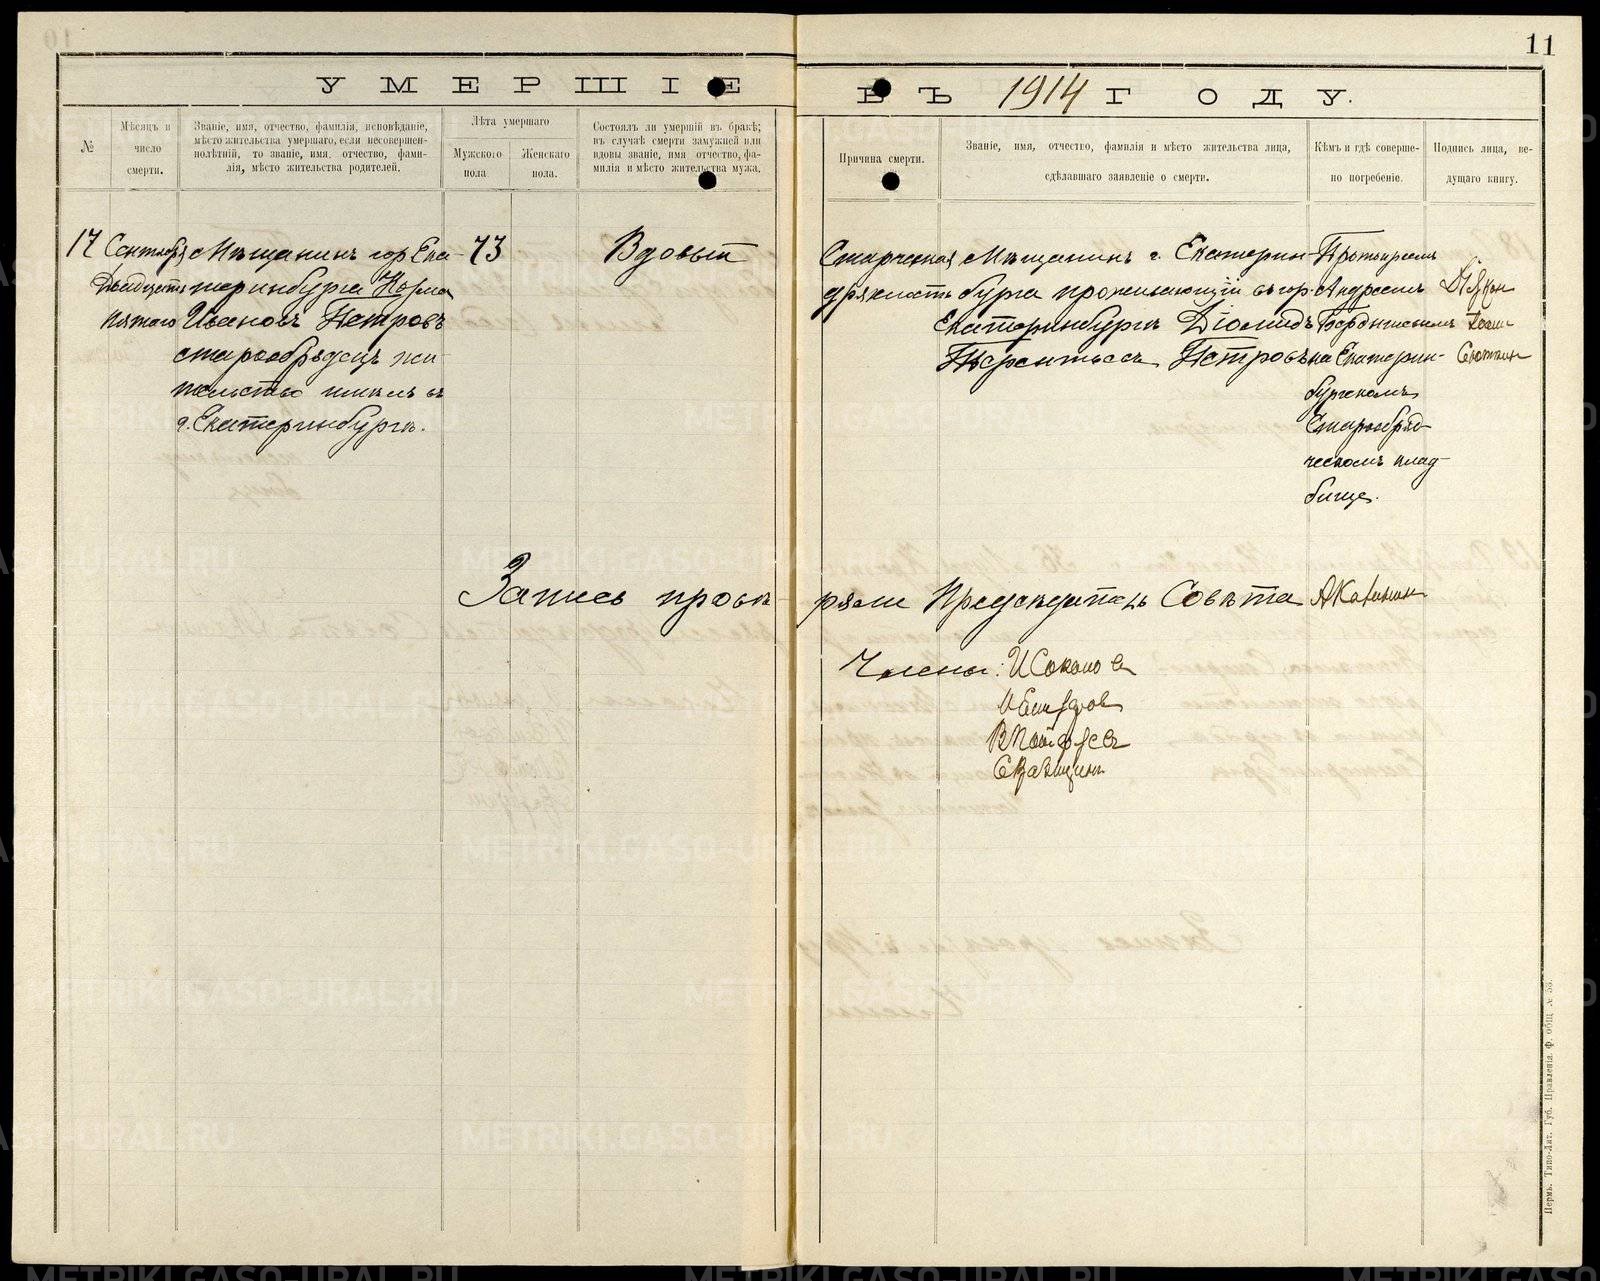 11
УМЕРШІЕ ВЪ 1914 ГОДУ.
№
Мѣсяцъ и число смерти.
Званіе, имя, отчество, фамилія, исповѣданіе,
мѣсто жительства умершаго, если несовершен-
нолѣтній, то званіе, имя, отчество, фами-
лія, мѣсто жительства родителей.
Лѣта умершаго
Мужского пола
Женскаго пола.
Состоялъ ли умершій въ бракѣ;
въ случаѣ смерти замужней или
вдовы званіе, имя отчество, фа-
милія и мѣсто жительства мужа.
Причина смерти.
Званіе, имя, отчество, фамилія и мѣсто жительства лица,
сдѣлавшаго заявленіе о смерти.
Кѣмъ и гдѣ соверше-
но погребеніе.
Подпись лица, ве-
дущаго книгу.
17
Сентября
Двадцать
пятаго
Мѣщанинъ гор Ека-
теринбурга Козма
Ивановъ Петровъ
старообрядецъ жи-
тельство имѣлъ въ
г. Екатеринбургѣ.
73
Вдовый
Старческая
дряхлость
Мѣщанинъ г. Екатерин-
бурга проживающій въ гор.
Екатеринбургѣ Діомидъ
Терентьевъ Петровъ
Протоіереемъ
Андреемъ
на Екатерин-
бургскомъ
Старообряд-
ческомъ клад-
бище.
Дьякон
Иоанн
Запись провѣ-
ряли Предсѣдатель Совѣта АКалинин
Члены: ИСоколов
METRIKI.GASO-URAL.RU
Пермь. Типо-Лит. Губ. Правленія. Ф. общ. № 33.